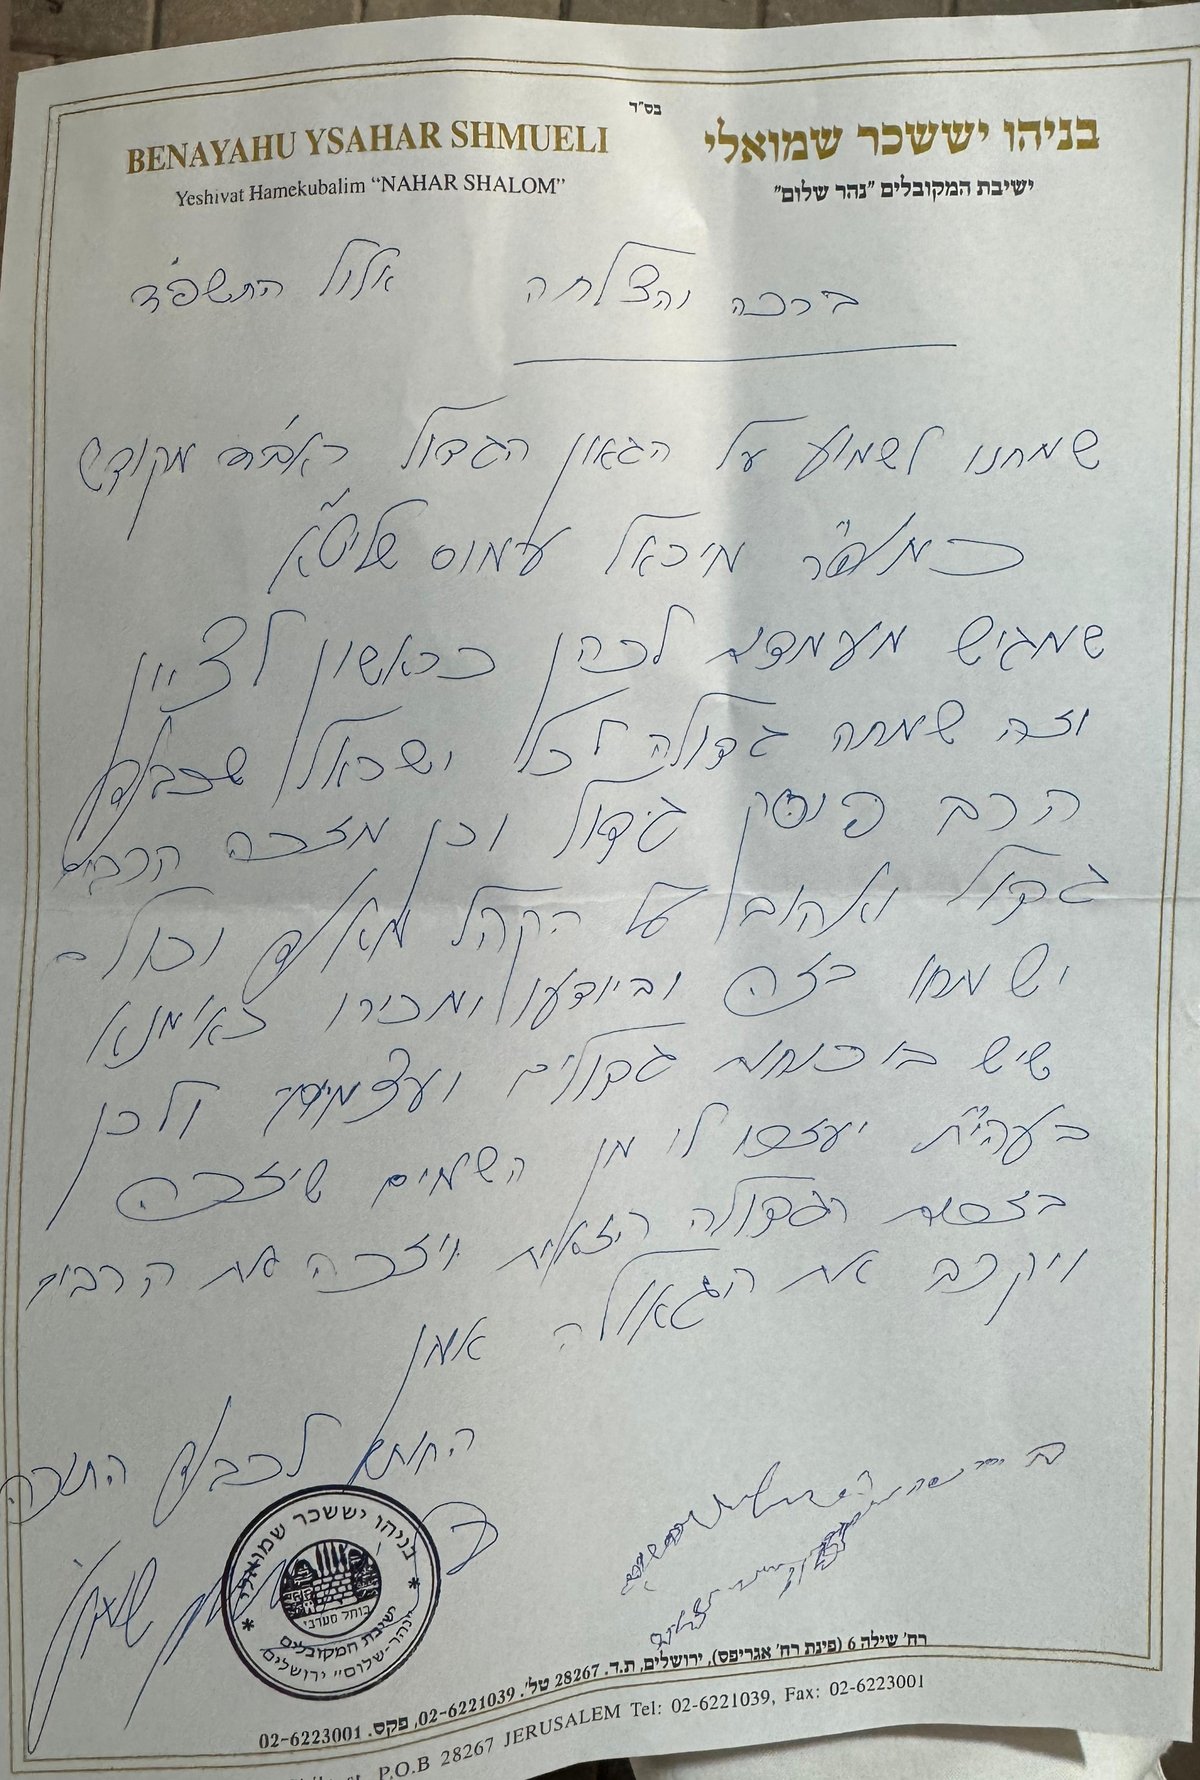 בס"ד
BENAYAHU YSAHAR SHMUELI
בניהו יששכר שמואלי
Yeshivat Hamekubalim "NAHAR SHALOM"
ישיבת המקובלים "נהר שלום"
ברכה והצלחה אלול התשפ"ד
שמחנו לשמוע על הגאון הגדול מקודש
כמוה"ר מיכאל עמוס שליט"א
שמגיש מועמדות לכהן כראשון לציון
וזה שמחה גדולה לכל ישראל
הרב פוסק גדול וכן מזכה הרבים
גדול ואהוב על הקהל מאוד וכולם
ישמחו בזה וביודעו ומכירו קאימנא
שיש בו כוחות גדולים ועצומים ולכן
בעהי"ת יעזרו לו מן השמים שיזכה
בזכות הגדולה הזאת ויזכה את הרבים
ויקרב את הגאולה אמן
החותם לכבוד התורה
בניהו יששכר שמואלי
כותל מערבי
ישיבת המקובלים
"נהר-שלום" ירושלים
רח' שילה 6 (פינת רח' אגריפס), ירושלים, ת.ד. 28267 טל'. 02-6221039, פקס. 02-6223001
P.O.B 28267 JERUSALEM Tel: 02-6221039, Fax: 02-6223001